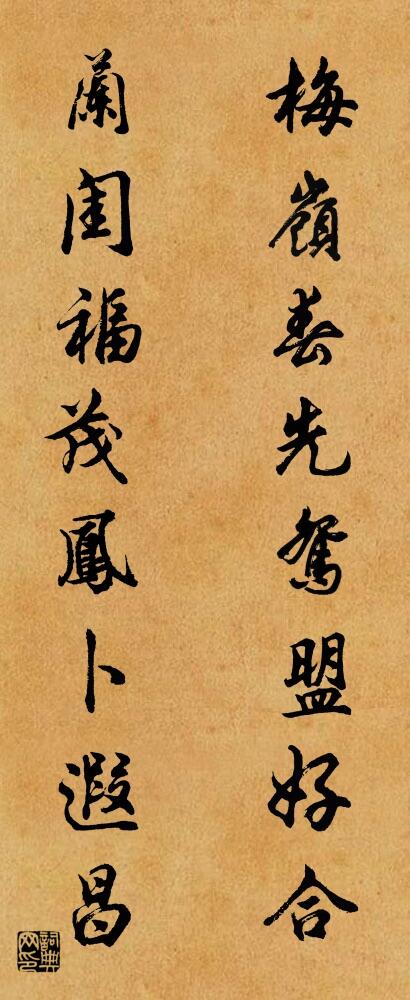 梅嶺春先鴛盟好合
蘭閨福茂鳳卜遐昌
詞典網印